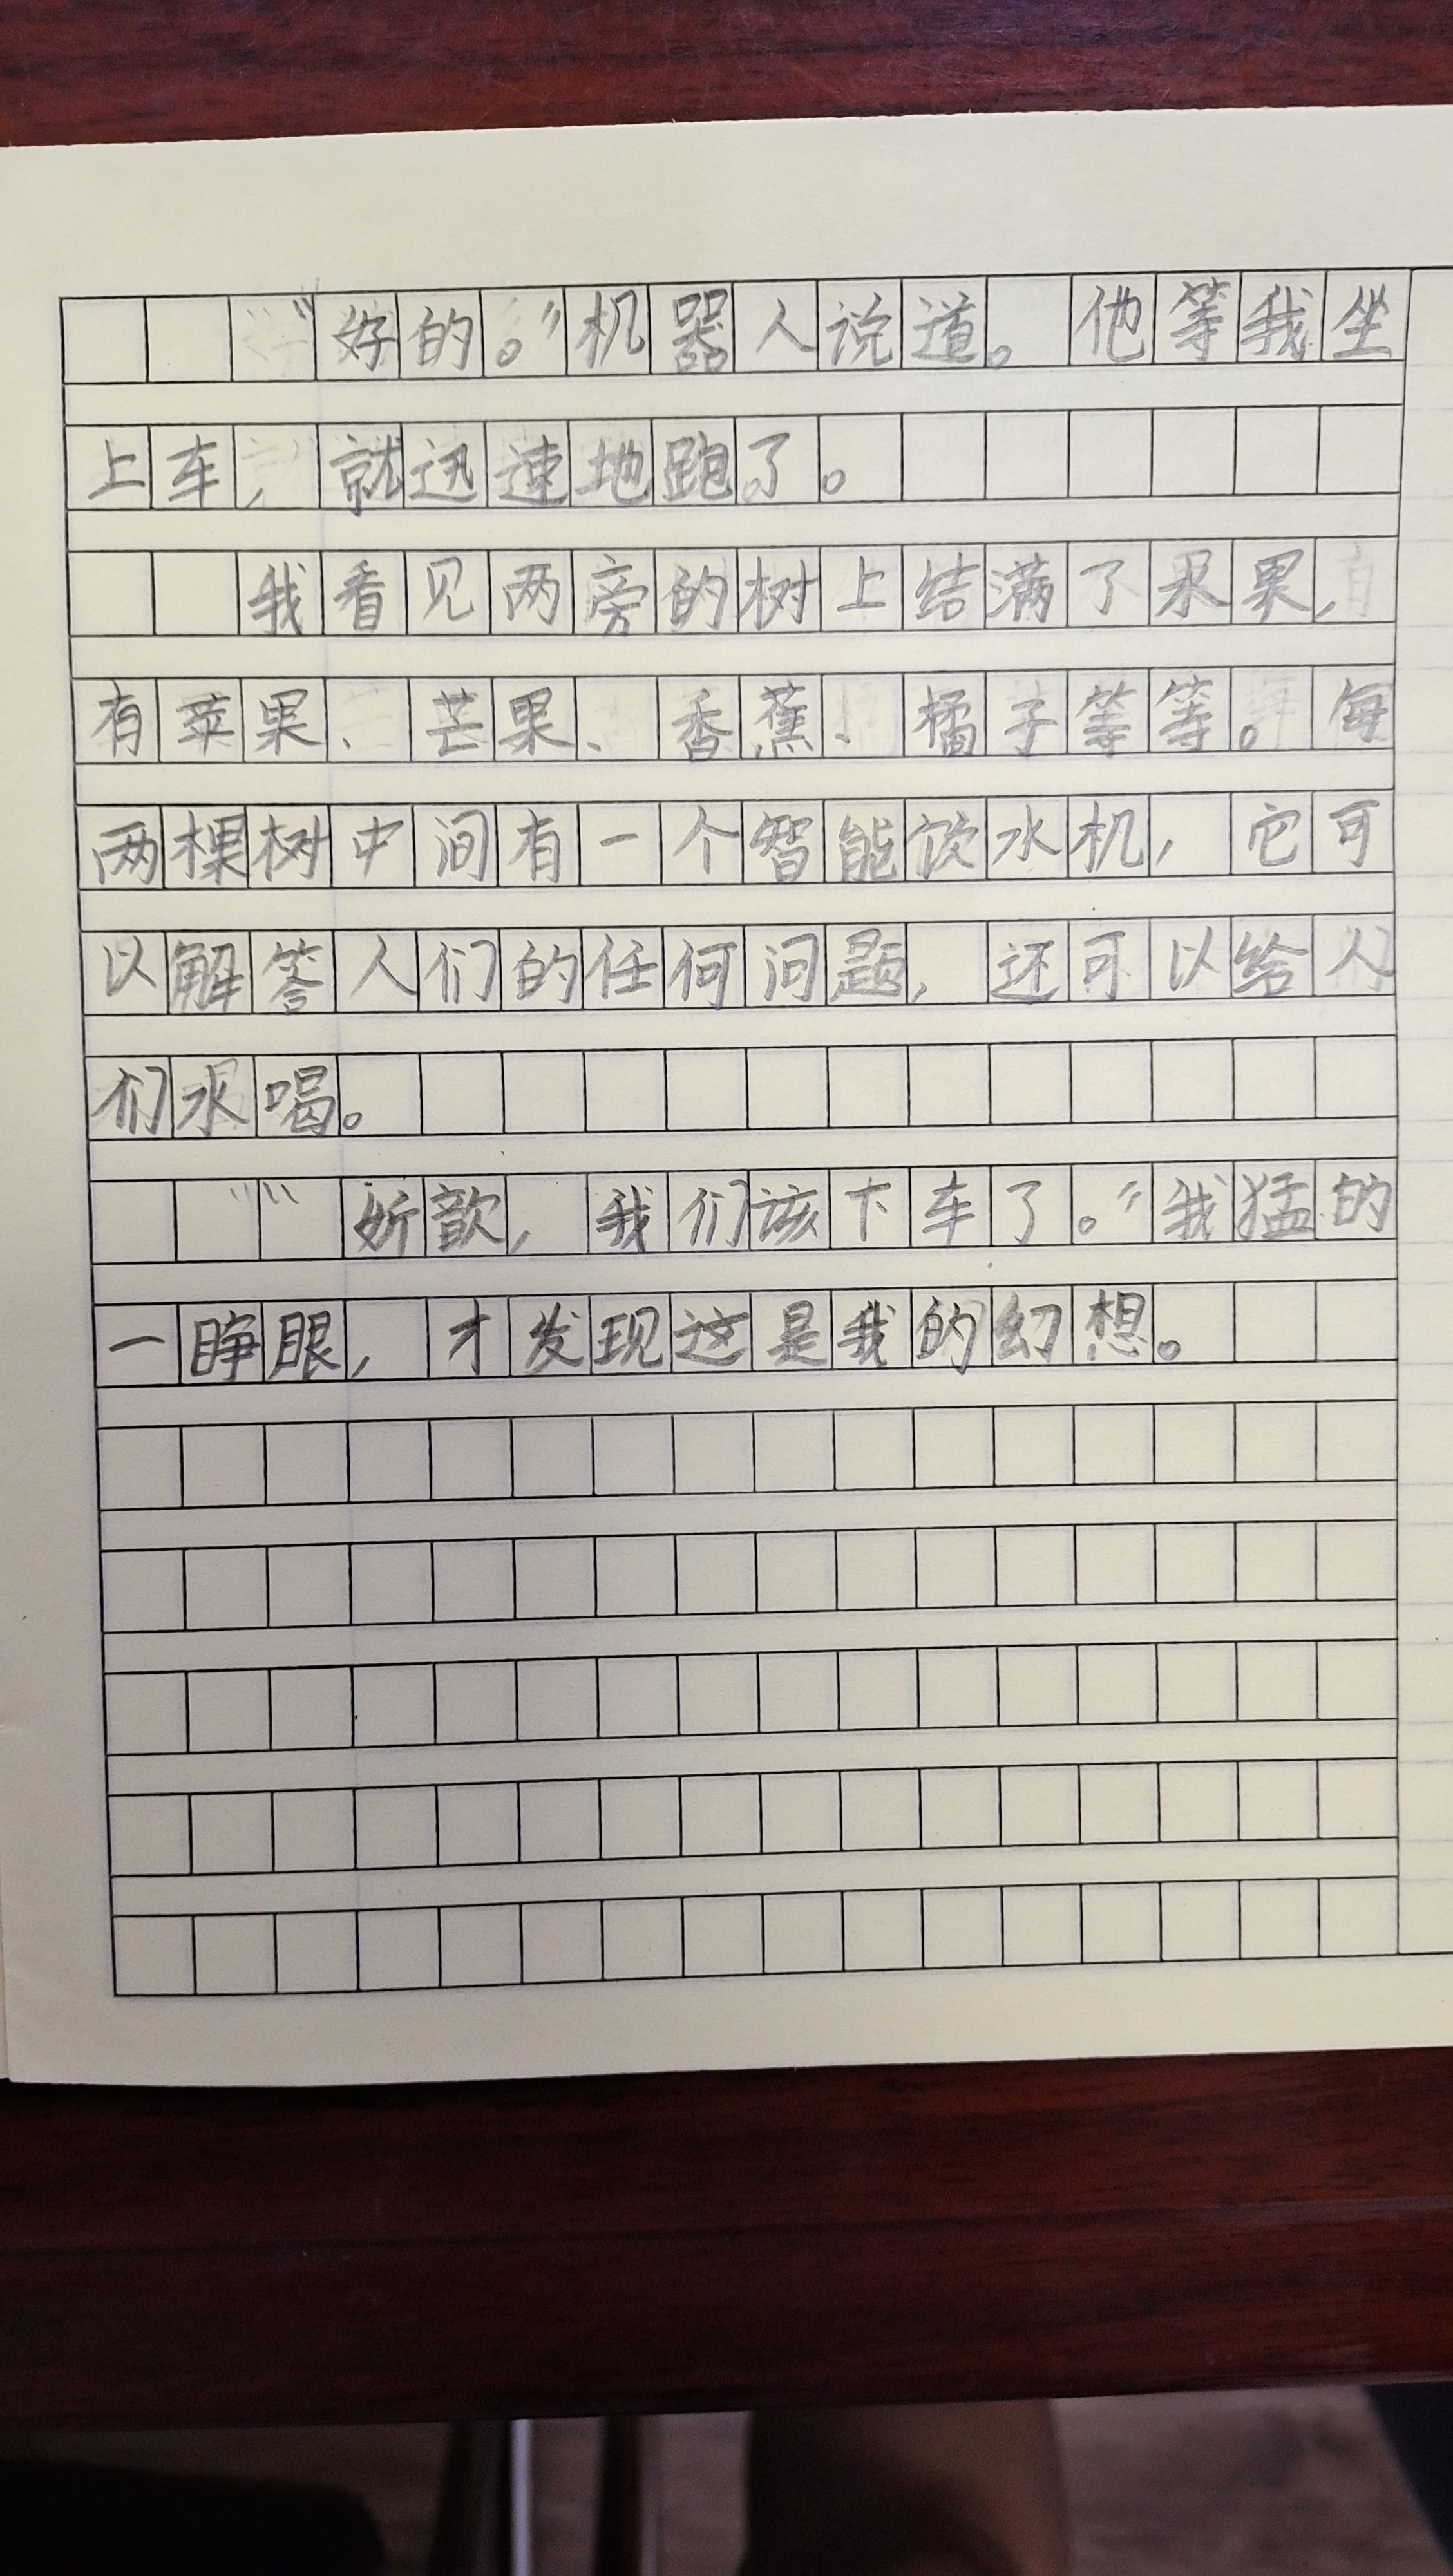 “好的。”机器人说道。他等我坐
上车，就迅速地跑了。
我看见两旁的树上结满了水果，
有苹果、芒果、香蕉、橘子等等。每
两棵树中间有一个智能饮水机，它可
以解答人们的任何问题，还可以给人
们水喝。
“妡歆，我们该下车了。”我猛的
一睁眼，才发现这是我的幻想。